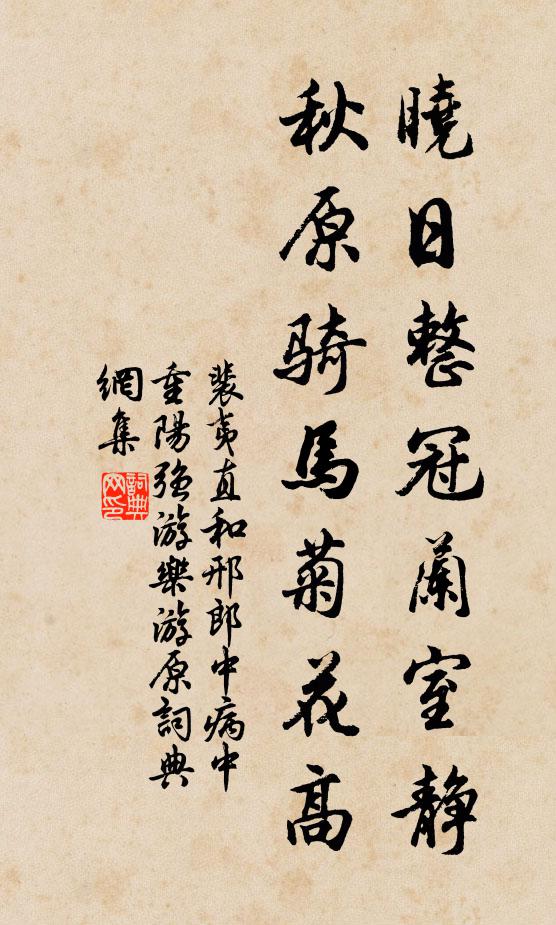 曉日整冠蘭室靜
秋原騎馬菊花高
裴夷直和邢郎中病中
重陽强游樂游原詞典
網集
詞典
网印